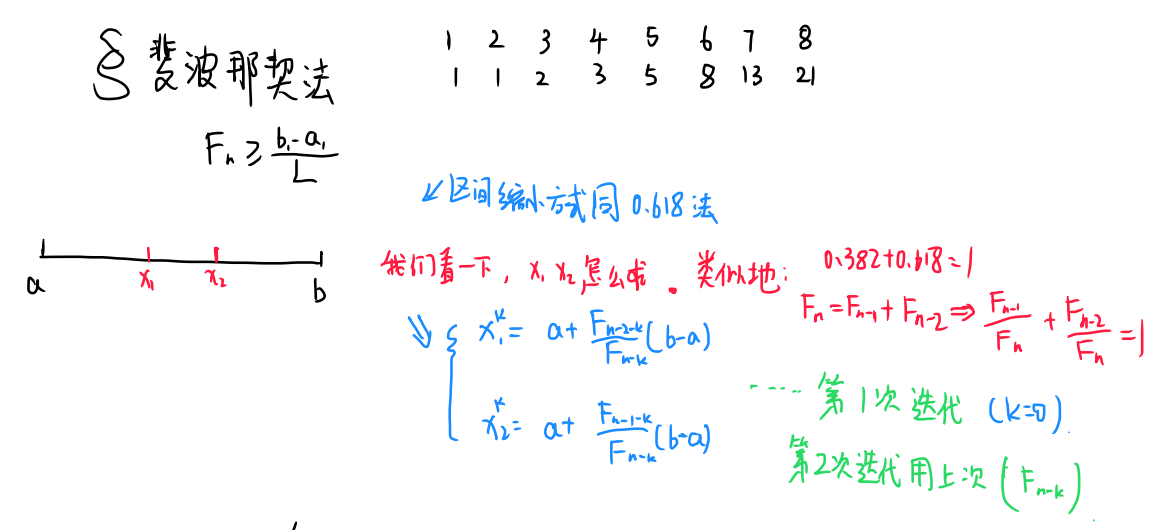 § 斐波那契法
1 2 3 4 5 6 7 8
1 1 2 3 5 8 13 21
Fₙ ≥ (b₁-a₁)/L
↙区间缩小方式同 0.618 法
a x₁ x₂ b
我们看一下, x₁ x₂怎么求。类似地:
0.382+0.618=1
Fₙ=Fₙ₋₁+Fₙ₋₂⇒ Fₙ₋₁/Fₙ + Fₙ₋₂/Fₙ =1
⇓ { x₁ᵏ= a+ F_{n-2-k}/F_{n-k} (b-a)
x₂ᵏ= a+ F_{n-1-k}/F_{n-k} (b-a)
····· 第1次迭代 (k=0)
第2次迭代用上次 (F_{n-k})